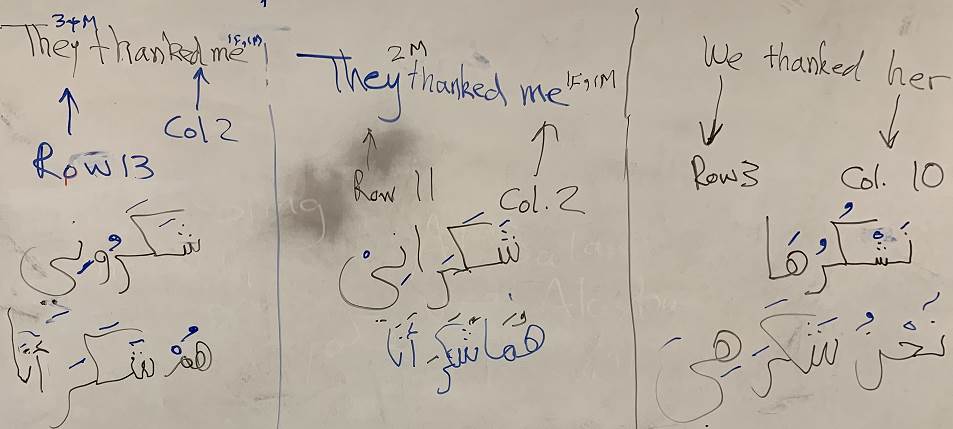 3+M
They thanked me 1F,1M
Row 13
Col 2
شَكَرُونِي
هُمْ شَكَرَ أَنَا
2M
They thanked me 1F,1M
Row 11
Col. 2
شَكَرَانِي
هُمَا شَكَرَ أَنَا
We thanked her
Row 3
Col. 10
نَشْكُرُهَا
نَحْنُ شَكَرَ هِيَ